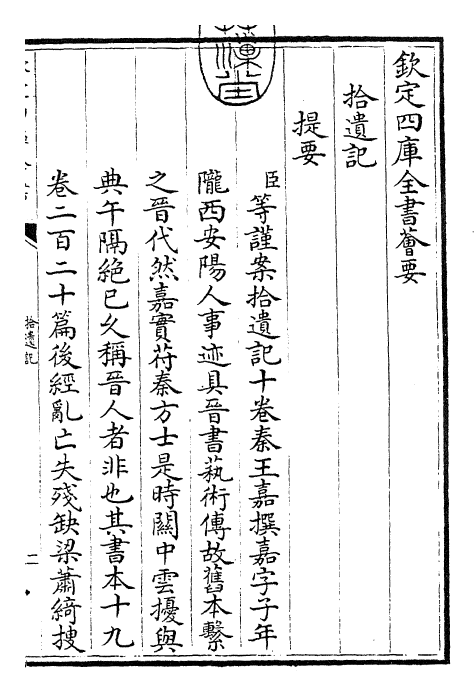 欽定四庫全書薈要
拾遺記
提要
臣等謹案拾遺記十卷秦王嘉撰嘉字子年
隴西安陽人事迹具晉書藝術傳故舊本繫
之晉代然嘉實苻秦方士是時關中雲擾與
典午隔絶已久稱晉人者非也其書本十九
卷二百二十篇後經亂亡失殘缺梁蕭綺搜
拾遺記
二